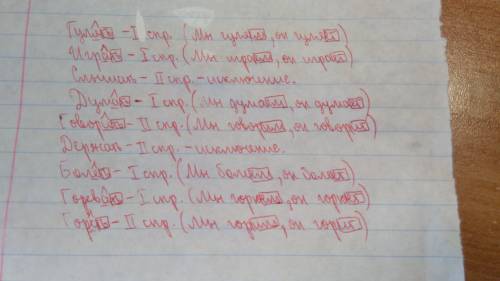 Гулять - I спр. (Мы гуляем, он гуляет)
Играть - I спр. (Мы играем, он играет)
Слышать - II спр. - исключение.
Думать - I спр. (Мы думаем, он думает)
Говорить - II спр. (Мы говорим, он говорит)
Держать - II спр. - исключение.
Болеть - I спр. (Мы болеем, он болеет)
Горевать - I спр. (Мы горюем, он горюет)
Гореть - II спр. (Мы горим, он горит)